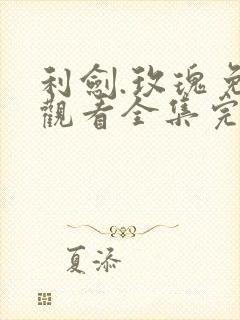 利劍.玫瑰免
觀看全集完
夏添